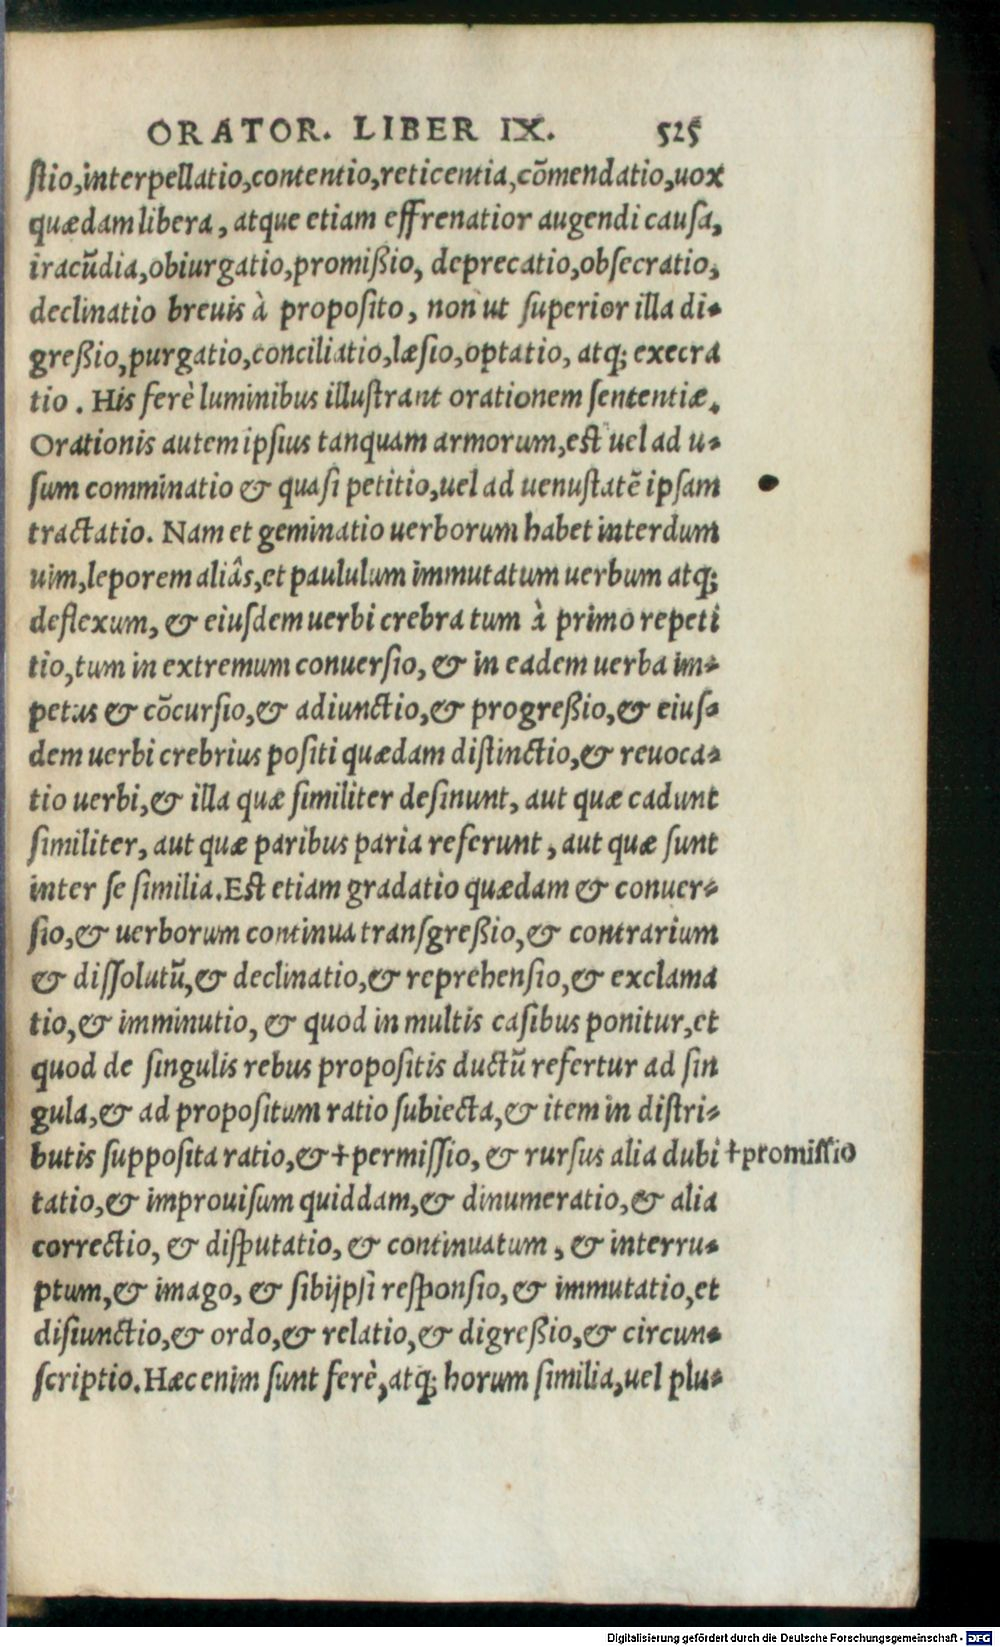 ORATOR. LIBER IX. 525
ſtio,interpellatio,contentio,reticentia,cōmendatio,uox
quædam libera, atque etiam effrenatior augendi cauſa,
iracūdia,obiurgatio,promißio, deprecatio,obſecratio,
declinatio breuis à propoſito, non ut ſuperior illa di-
greßio,purgatio,conciliatio,læſio,optatio, atq; execra
tio. His ferè luminibus illuſtrant orationem ſententiæ.
Orationis autem ipſius tanquam armorum,eſt uel ad u-
ſum comminatio & quaſi petitio,uel ad uenuſtatē ipſam
tractatio. Nam et geminatio uerborum habet interdum
uim,leporem aliâs,et paululum immutatum uerbum atq;
deflexum, & eiuſdem uerbi crebra tum à primo repeti
tio,tum in extremum conuerſio, & in eadem uerba im-
petus & cōcurſio,& adiunctio,& progreßio,& eiuſ-
dem uerbi crebrius poſiti quædam diſtinctio,& reuoca-
tio uerbi,& illa quæ ſimiliter deſinunt, aut quæ cadunt
ſimiliter, aut quæ paribus paria referunt, aut quæ ſunt
inter ſe ſimilia.Eſt etiam gradatio quædam & conuer-
ſio,& uerborum continua tranſgreßio,& contrarium
& diſſolutū,& declinatio,& reprehenſio,& exclama
tio,& imminutio, & quod in multis caſibus ponitur,et
quod de ſingulis rebus propoſitis ductū refertur ad ſin
gula,& ad propoſitum ratio ſubiecta,& item in diſtri-
butis suppoſita ratio,& ✝permiſſio, & rurſus alia dubi ✝promiſſio
tatio,& improuiſum quiddam,& dinumeratio,& alia
correctio, & diſputatio, & continuatum, & interru-
ptum,& imago, & ſibijpſi reſponſio,& immutatio,et
diſiunctio,& ordo,& relatio,& digreßio,& circun-
ſcriptio.Hæc enim ſunt ferè,atq; horum ſimilia,uel plu-
Digitalisierung gefördert durch die Deutsche Forschungsgemeinschaft - DFG